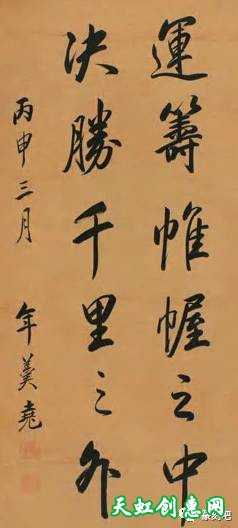 運籌帷幄之中
決勝千里之外
丙申三月
年羹堯
天虹创意网
篆刻吧